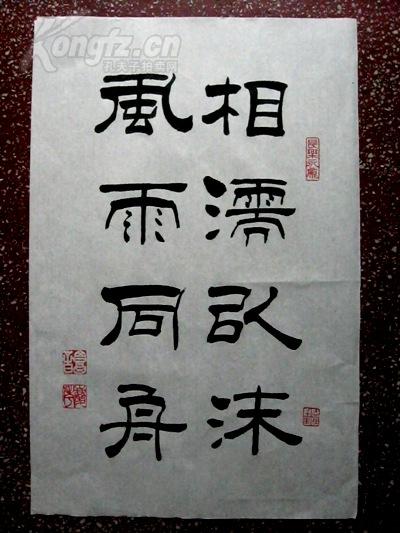 Kongfz.cn
孔夫子拍卖网
相濡以沫
風雨同舟